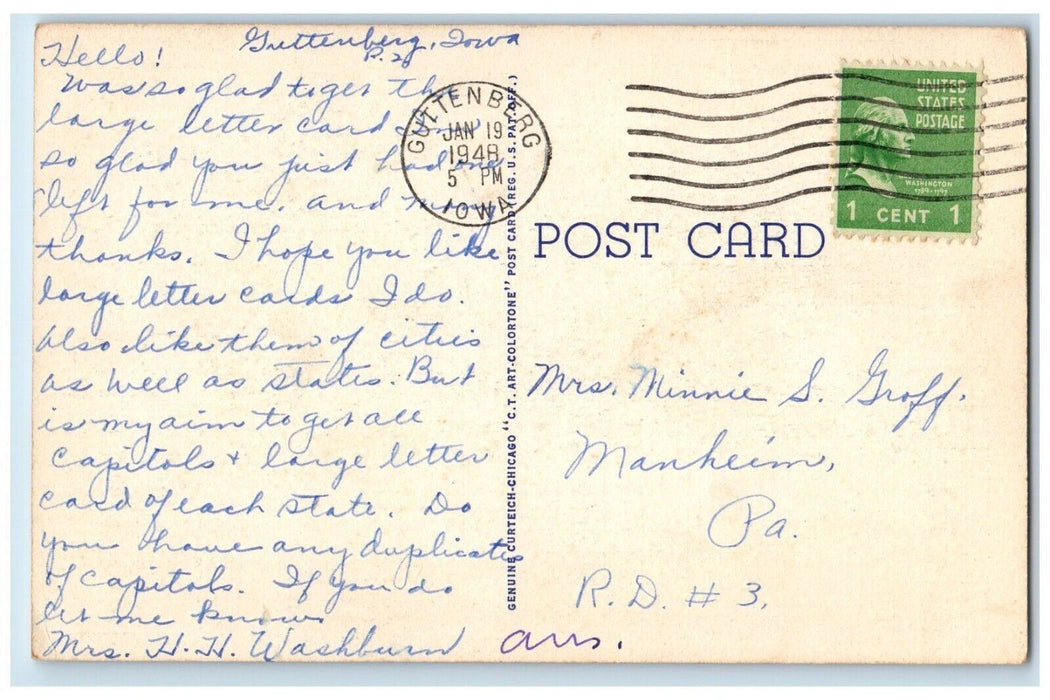 Guttenberg, Iowa
Hello!
Was so glad to get the
large letter card and
so glad you just had one
left for me. and many
thanks. I hope you like
large letter cards I do.
Also like them of cities
as well as states. But
is my aim to get all
Capitols + large letter
card of each state. Do
you have any duplicates
of capitols. If you do
let me know
Mrs. H. H. Washburn
ans.
GUTTENBERG
JAN 19
1948
5 PM
IOWA
GENUINE CURTEICH-CHICAGO "C.T. ART-COLORTONE" POST CARD (REG. U.S. PAT. OFF.)
UNITED
STATES
POSTAGE
WASHINGTON
1789-1797
1 CENT 1
POST CARD
Mrs. Minnie S. Groff.
Manheim,
Pa.
R.D. # 3.